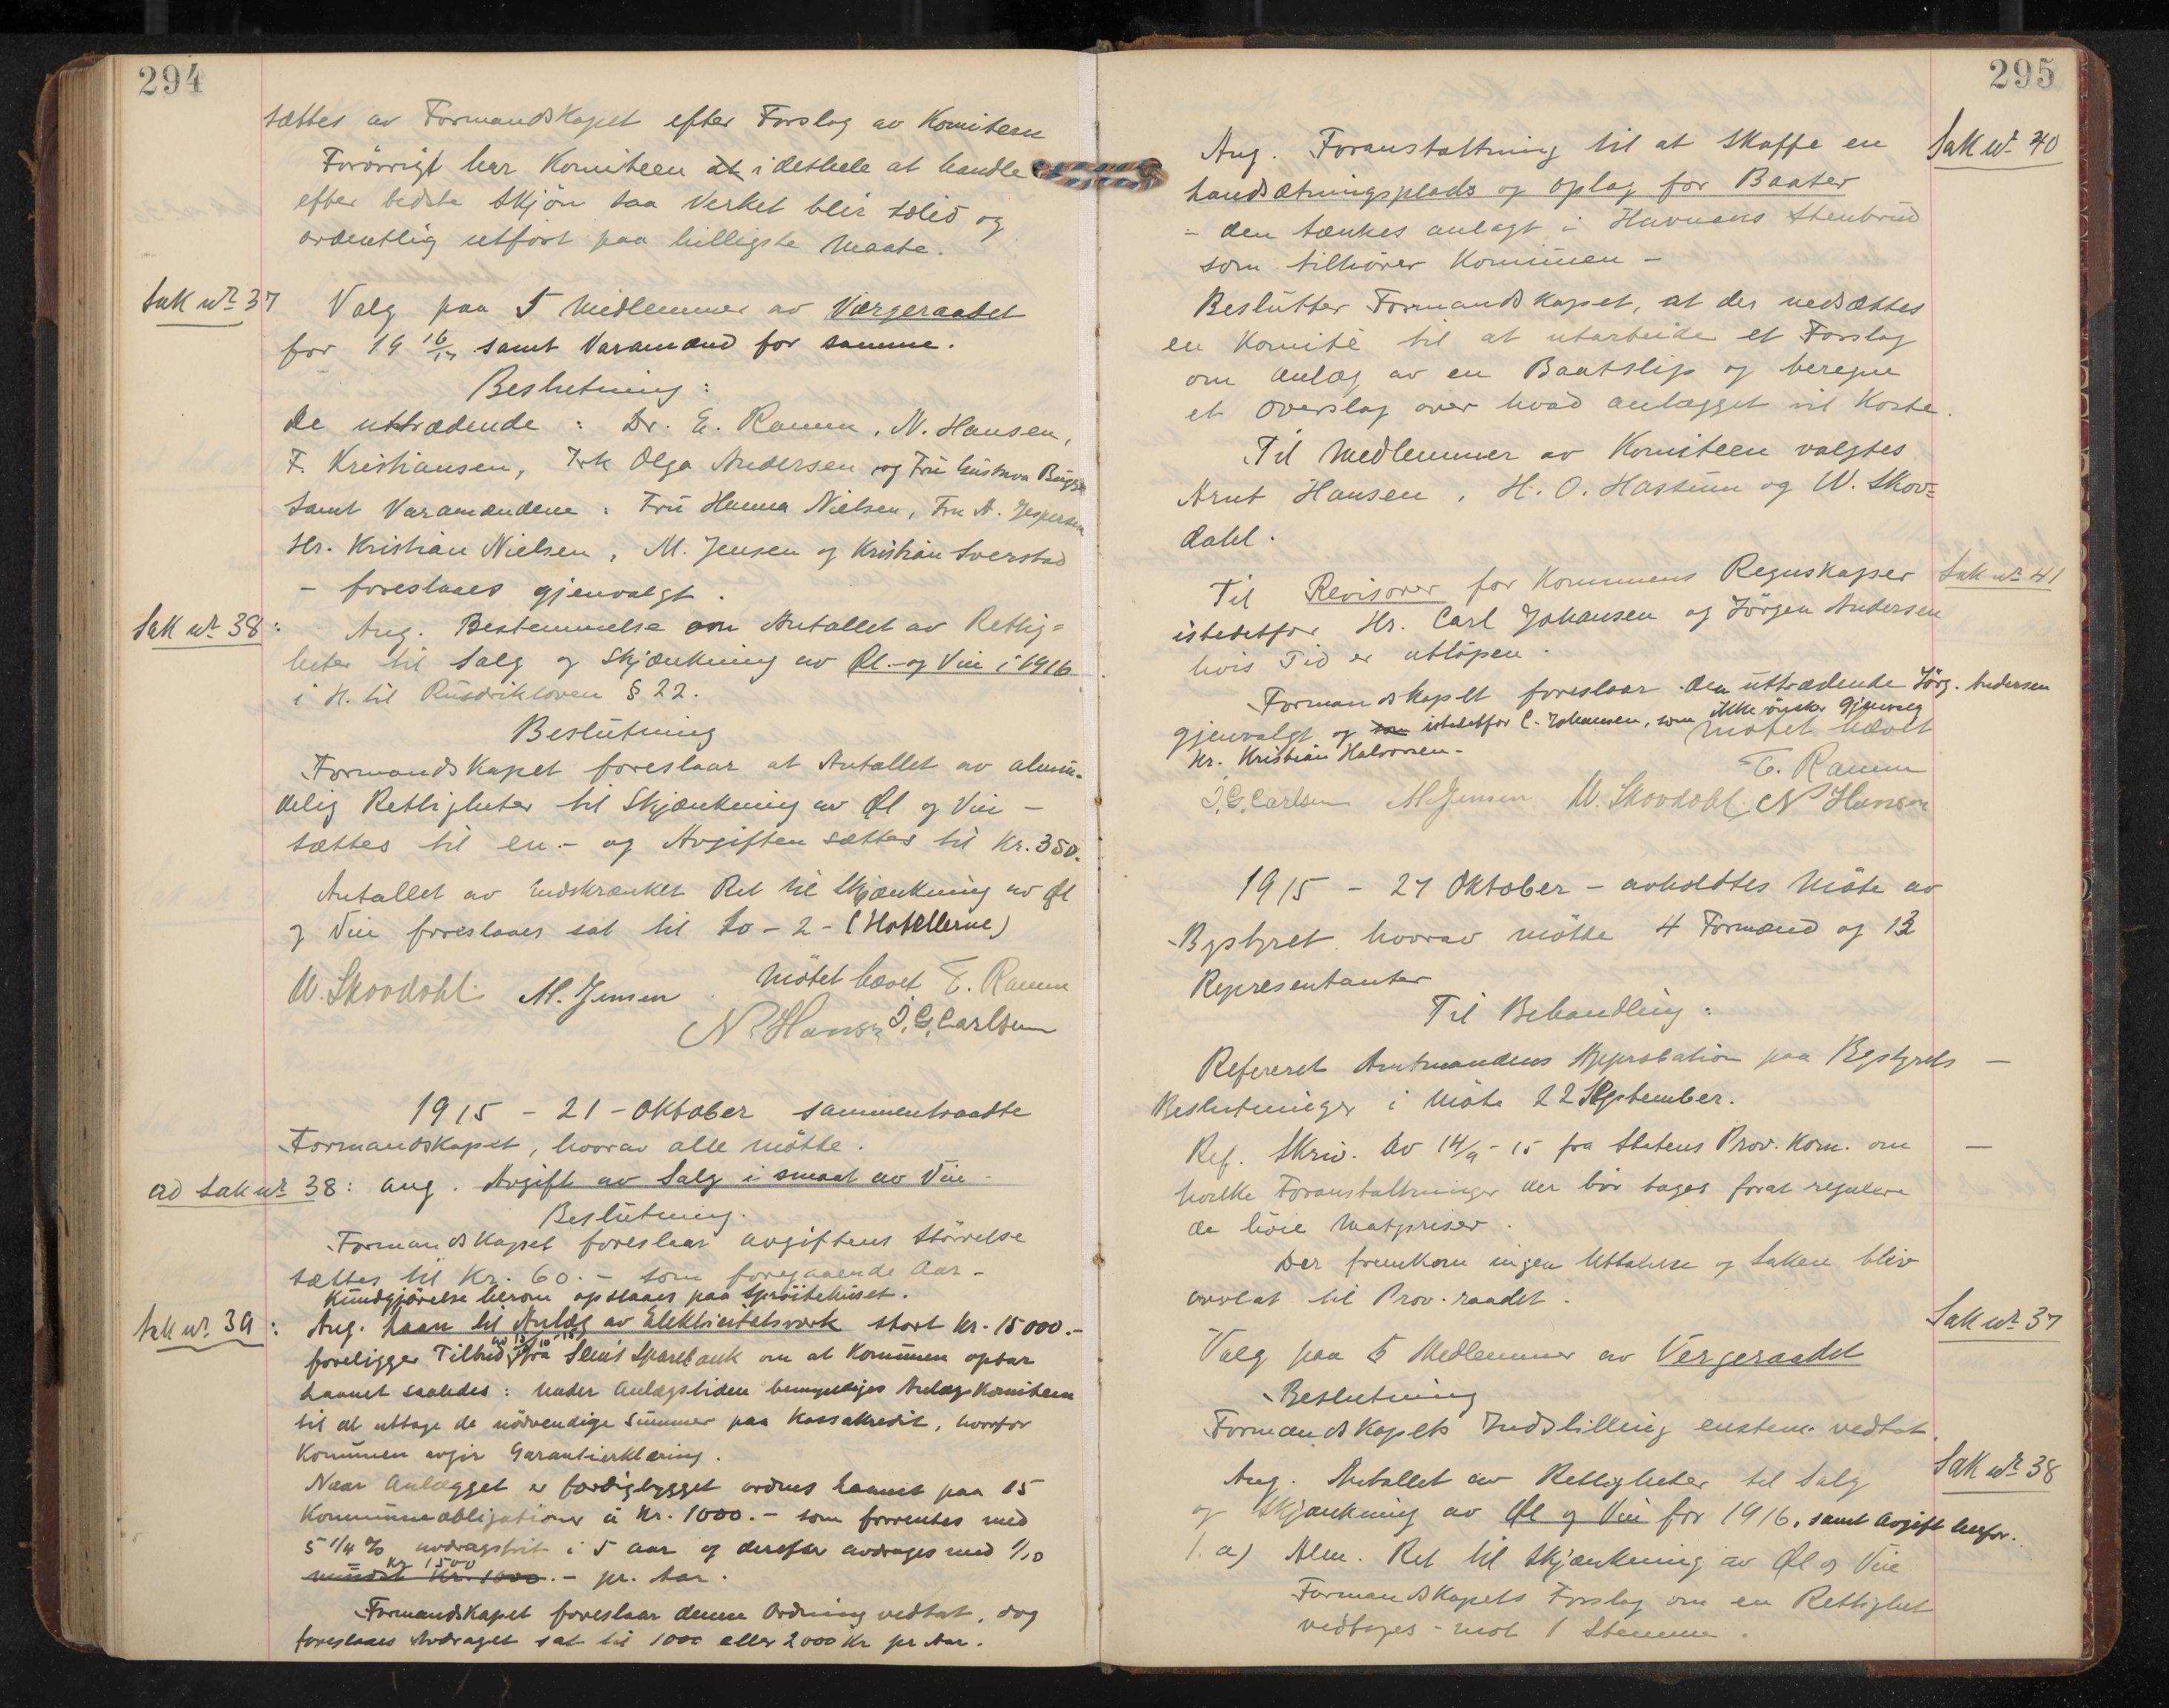 294
sættes av Formandskapet efter Forslag av Komiteen
Forövrigt har Komiteen at i dethele at handle
efter bedste Skjön saa Verket blir solid og
ordentlig utfört paa billigste Maate.
Sak nr. 37
Valg paa 5 Medlemmer av Værgeraadet
for 19 16/17 samt Varamænd for samme.
Beslutning:
De uttrædende: Dr. E. Ramm, N. Hansen,
F. Kristiansen, Frk Olga Andersen og Fru Gustava Bugge
samt Varamændene: Fru Hanna Nielsen, Fru A. Jespersen
Hr. Kristian Nielsen, M. Jensen og Kristian Sverstad
- foreslaaes gjenvalgt.
Sak nr. 38:
Ang. Bestemmelse om Antallet av Rettig=
heter til Salg og Skjænkning av Øl- og Vin i 1916
i H. til Rusdrikloven § 22.
Beslutning
Formandskapet foreslaar at Antallet av almin-
delig Rettigheter til Skjænkning av Øl og Vin -
sættes til en - og Avgiften sættes til Kr. 350.
Antallet av Indskrænket Ret til Skjænkning av Øl
og Vin foreslaaes sat til to - 2 - (Hotellerne)
Mötet hævet E. Ramm
W. Skovdahl M. Jensen
N Hansen J. G. Carlsen
1915 - 21 - Oktober sammentraadte
Formandskapet, hvorav alle mötte.
ad Sak nr. 38: ang. Avgift av Salg i smaat av Vin
Beslutning.
Formandskapet foreslaar avgiftens Störrelse
sættes til Kr. 60.- som foregaaende Aar -
Kundgjörelse herom opslaaes paa Spröitehuset.
Sak nr. 39:
Ang. Laan til Anlæg av Elektricitetsverk stort Kr. 15000.-
foreligger Tilbud av 13/10-15 fra Slens Sparebank om at Kommunen optar
Laanet saaledes: Under Anlægstiden bemyndiges Anlægskomiteen
til at uttage de nödvendige Summer paa Kassakredit, hvorfor
Kommunen avgir Garantierklæring.
Naar Anlægget er færdigbygget ordnes Laanet paa 15
Kommuneobligationer à Kr. 1000.- som forrentes med
5 1/4 % avdragsfrit i 5 aar og derefter avdrages med 1/10
Kr 1500
mindst Kr. 1000.- pr. Aar.
Formandskapet foreslaar denne Ordning vedtat, dog
foreslaaes Avdraget sat til 1000 eller 2000 Kr pr Aar.
295
Sak nr. 40
Ang. Foranstaltning til at skaffe en
landsætningsplads og oplag for Baater
- den tænkes anlagt i Havnens Stenbrud
som tilhörer Kommunen -
Beslutter Formandskapet, at der nedsættes
en Komité til at utarbeide et Forslag
om Anlæg av en Baatslip og beregne
et Overslag over hvad anlægget vil koste.
Til Medlemmer av Komiteen valgtes
Arnt Hansen, H. O. Hassum og W. Skov=
dahl.
Sak nr. 41
Til Revisorer for Kommunens Regnskaper
istedetfor Hr. Carl Johansen og Jörgen Andersen
hvis Tid er utlöpen.
Formandskapet foreslaar den uttrædende Jörg. Andersen
gjenvalgt og som istedetfor C. Johansen, som ikke önsker Gjenvalg
Hr. Kristian Halvorsen -
Mötet hævet
E. Ramm
J. G. Carlsen M Jensen W. Skovdahl N Hansen
1915 - 27 Oktober - avholdtes Möte av
Bystyret hvorav mötte 4 Formænd og 13
Representanter
Til Behandling:
Refereret Amtmandens Approbation paa Bystyrets -
Beslutninger i Möte 22 September.
Ref. Skriv. av 14/9 - 15 fra Statens Prov. Kom. om -
hvilke Foranstaltninger der bör tages forat regulere
de höie Matpriser.
Der fremkom ingen Uttalelse og Saken blev
avslat til Prov. raadet.
Sak nr. 37
Valg paa 5 Medlemmer av Vergeraadet
Beslutning
Formandskapets Indstilling enstem. vedtat.
Sak nr. 38
Ang. Antallet av Rettigheter til Salg
og Skjænkning av Øl og Vin for 1916, samt Avgift herfor.
1. a) Alm. Ret til Skjænkning av Øl og Vin
Formandskapets Forslag om en Rettighet
vedtages - mot 1 Stemme.